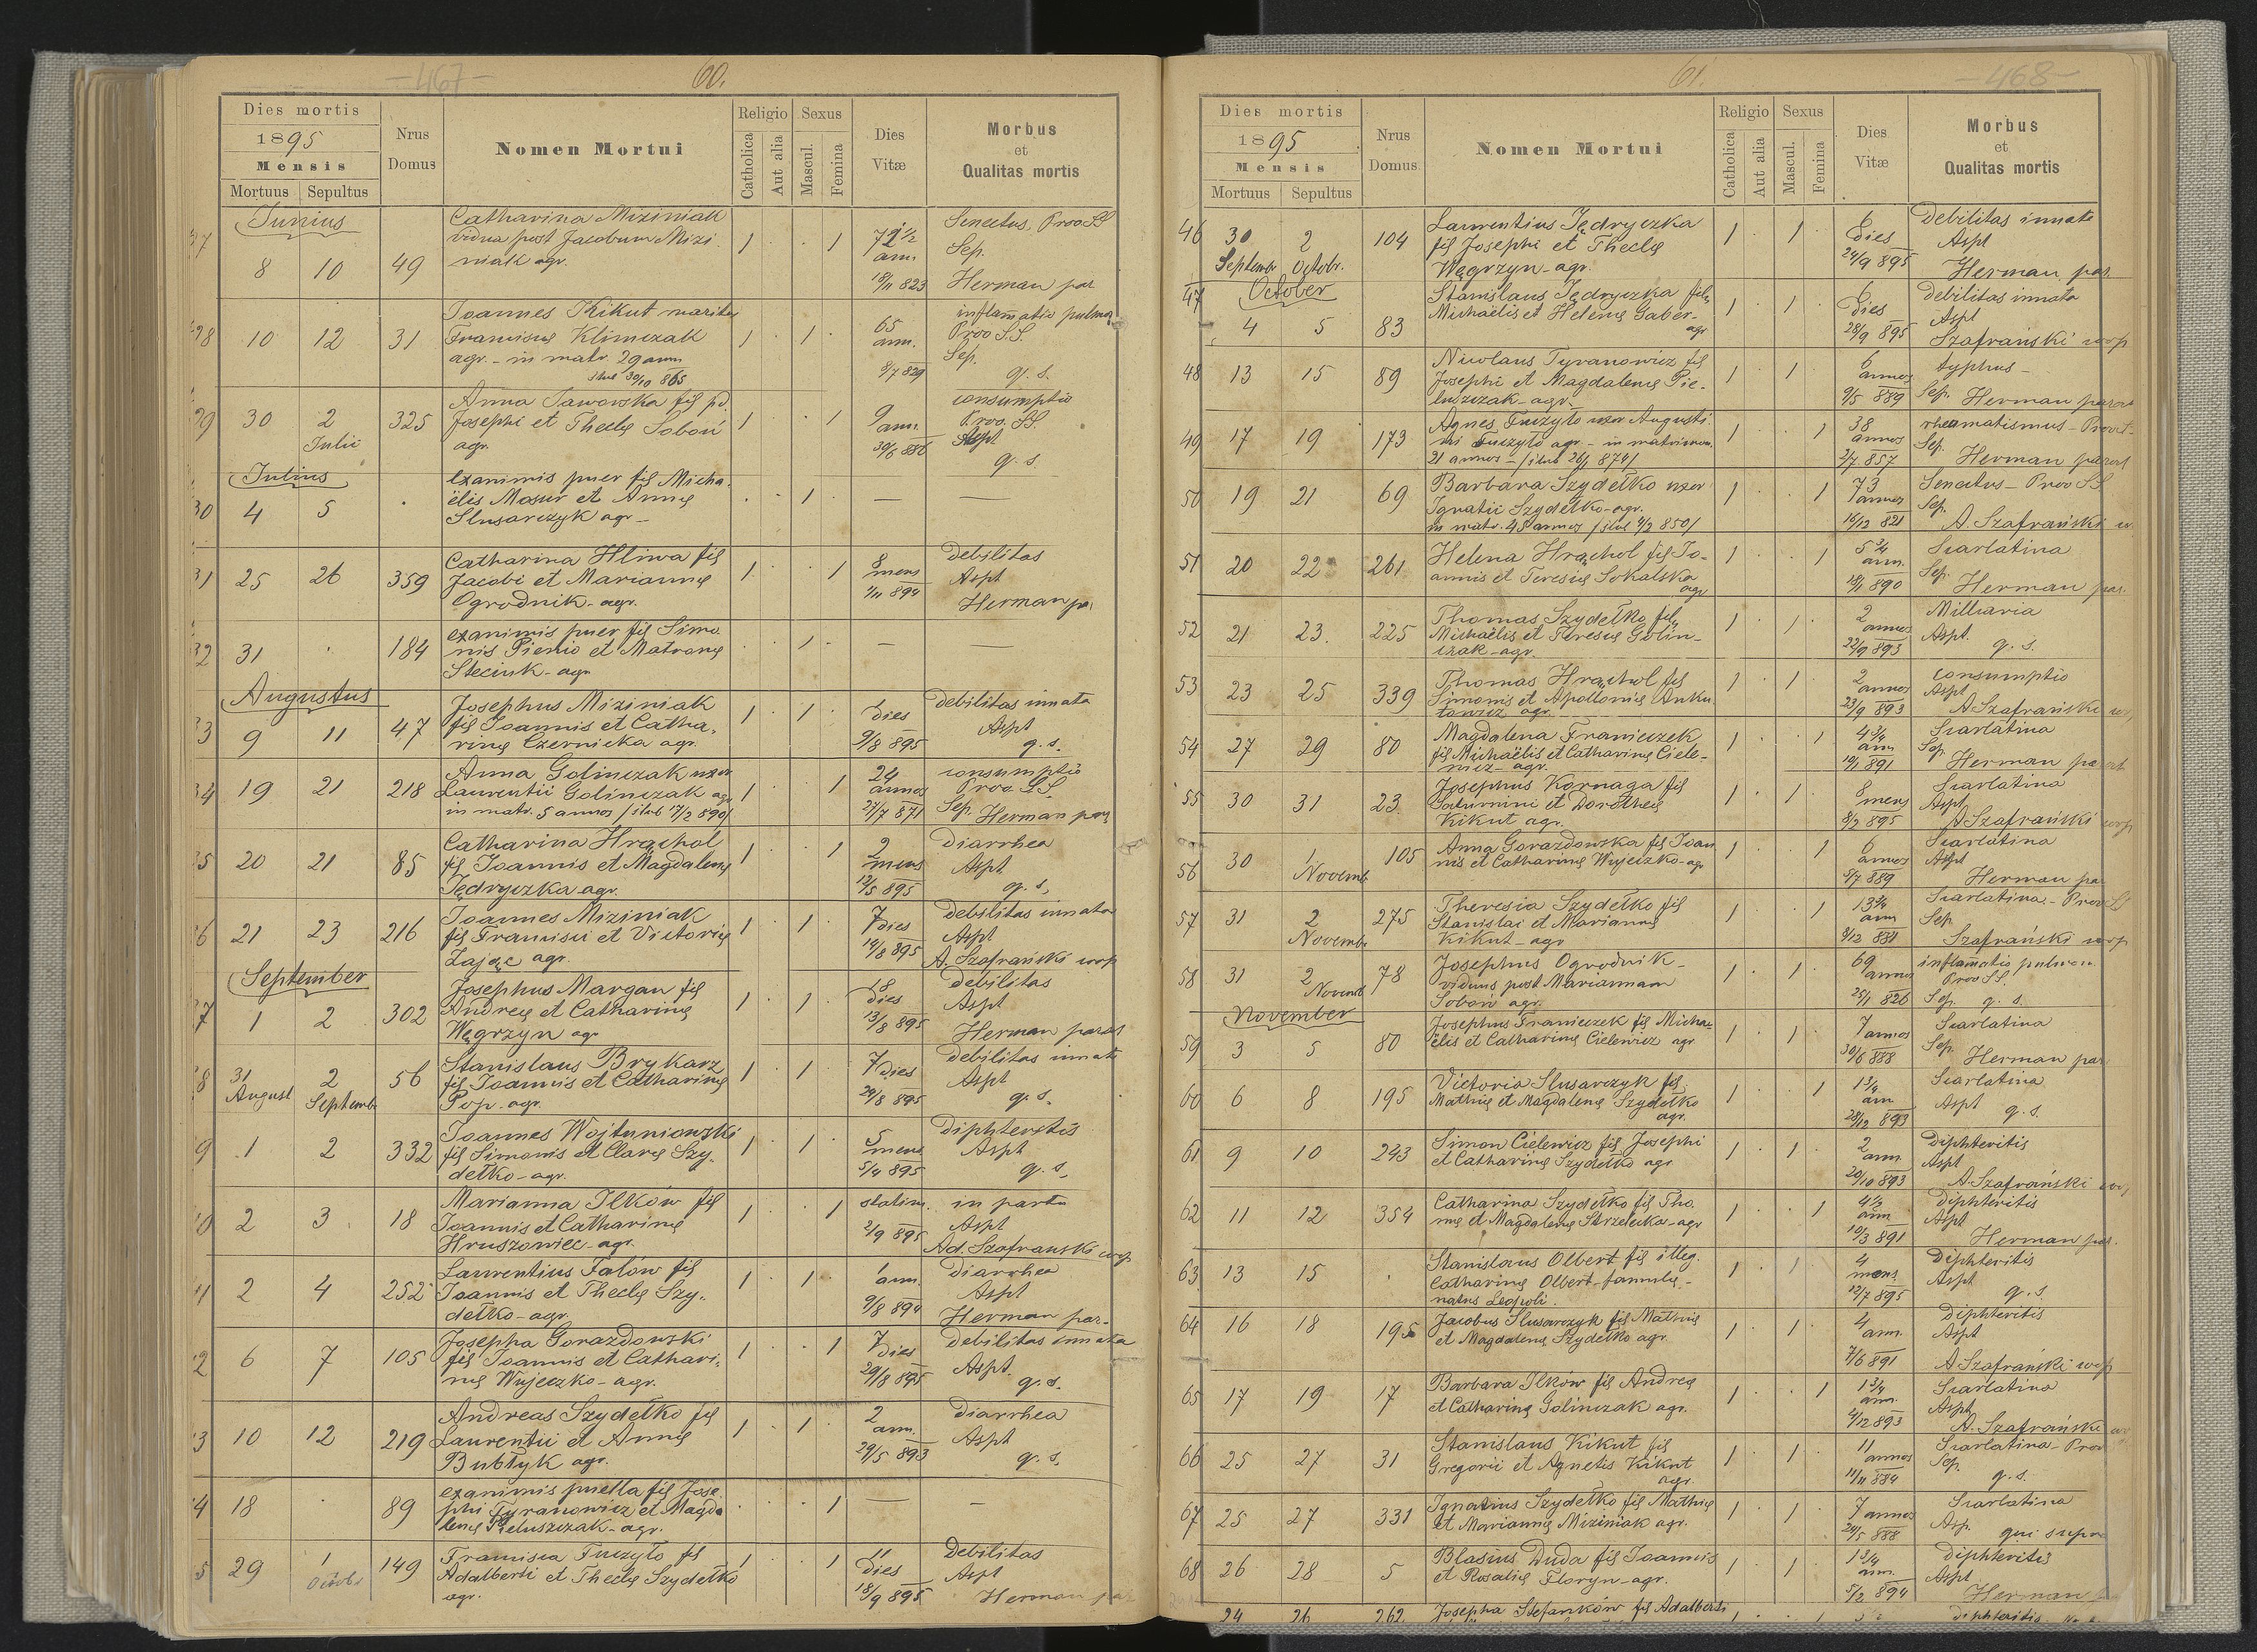 -467-
60.
Dies mortis
1895
Mensis
Mortuus Sepultus
Nrus
Domus
Nomen Mortui
Religio
Catholica
Aut alia
Sexus
Mascul.
Femina
Dies
Vitæ
Morbus
et
Qualitas mortis
Junius
8 10 49
Catharina Miziniak
vidua post Jacobum Mizi-
niak agr.
1 1
72 1/2
ann.
18/11 823
Senectus, Prov. SS
Sep.
Herman par
28 10 12 31
Joannes Kikut maritus
Franciscæ Klimczak
agr. - in matr. 29 ann
slub 30/10 865
1 1
65
ann.
9/7 829
inflam̄atio pulmon
Prov S.S.
Sep.
q. s.
29 30 2
Julii
325
Josephi et Theclę Soboń
agr.
1 1
9
ann.
30/6 886
consumptio
Prov. SS.
Aspt
q. s.
Julius
30 4 5
exanimis puer fil Micha-
ëlis Mazur et Annę
Slusarczyk agr -
1
31 25 26 359
Catharina Hliwa fil
Jacobi et Mariannę
Ogrodnik - agr.
1 1
8
mens
1/11 894
debilitas
Aspt
Herman pa
32 31 184
exanimis puer fil Simo
nis Pienio et Matronę
Steciuk - agr
1
Augustus
33 9 11 47
Josephus Miziniak
fil Joannis et Catha-
rinę Czernicka agr.
1 1
dies
9/8 895
debilitas innata
Aspt
q. s.
34 19 21 218
Anna Golinczak uxor
Laurentii Golinczak agr
in matr. 5 annos / slub 17/2 890/
1 1
24
annos
27/7 871
consumptio
Prov. SS
Sep. Herman par
35 20 21 85
Catharina Hrąchol
fil Joannis et Magdalenę
Jędryczka agr.
1 1
mens
12/5 895
diarrhea
Aspt
q. s.
36 21 23 216
Joannes Miziniak
fil Francisci et Victorię
Zając agr.
1 1
7 dies
14/8 895
debilitas innata
Aspt
A. Szafrański coop
September
37 1 2 302
Josephus Margan fil
Andreę et Catharinę
Węgrzyn agr
1 1
18
dies
13/8 895
debilitas
Aspt
Herman paros
38 31
August
2
Septemb
56
Stanislaus Brykarz
fil Joannis et Catharinę
Pop. agr.
1 1
7 dies
24/8 895
debilitas innata
Aspt
q. s.
39 1 2 332
Joannes Wojtuniowski
fil Simonis et Clarę Szy-
dełko - agr.
1 1
5
mens
5/4 895
diphteritis
Aspt
q. s.
40 2 3 18
Marianna Ilków fil
Joannis et Catharinę
Hruszowiec - agr.
1 1
statim
2/9 895
in partu
Aspt
Ad. Szafrański coop
41 2 4 252
Laurentius Falów fil
Joannis et Theclę Szy-
dełko - agr.
1 1
1
ann.
9/8 894
diarrhea
Aspt
Herman par.
42 6 7 105
Josepha Gorazdowski
fil Joannis et Cathari-
nę Wujeczko - agr.
1 1
7
dies
29/8 895
debilitas innata
Aspt.
q. s.
43 10 12 219
Andreas Szydełko fil
Laurentii et Annę
Bubłyk agr.
1 1
2
ann.
29/5 893
diarrhea
Aspt
q. s.
44 18 89
exanimis puella fil Jose
phi Tyranowicz et Magda
lenę Pieluszczak - agr.
1
45 29 1
Octobr
149
Francisca Fuczyło fil
Adalberti et Theclę Szydełko
agr.
1 1
11
dies
18/9 895
debilitas
Aspt
Herman pa
61.
-468-
Dies mortis
1895
Mensis
Mortuus Sepultus
Nrus
Domus
Nomen Mortui
Religio
Catholica
Aut alia
Sexus
Mascul.
Femina
Dies
Vitæ
Morbus
et
Qualitas mortis
46 30
Septembr
2
Octobr.
104
Laurentius Jędryczka
fil Josephi et Theclę
Węgrzyn - agr.
1 1
6
dies
24/9 895
debilitas innata
Aspt
Herman par.
October
47 4 5 83
Stanislaus Jędryczka fil
Michaëlis et Helenę Gaber-
agr
1 1
6
dies
28/9 895
debilitas innata
Aspt
Szafrański coop
48 13 15 89
Nicolaus Tyranowicz fil
Josephi et Magdalenę Pie-
luszczak - agr.
1 1
6
annos
9/5 889
typhus -
Sep. Herman paros
49 17 19 173
Agnes Fuczyło uxor Augusti-
ni Fuczyło agr - in matrimon.
21 annos - / slub 26/1 874/
1 1
38
annos
2/7 857
rheumatismus - Provet.
Sep.
Herman paros
50 19 21 69
Barbara Szydełko uxor
Ignatii Szydełko - agr.
in matr. 45 annos / slub 4/2 850/
1 1
73
annos
16/12 821
Senectus - Prov SS
Sep.
A. Szafrański
51 20 22 261
Helena Hrąchol fil Jo-
annis et Teresię Sokalska
agr
1 1
5 3/4
ann.
18/1 890
Scarlatina
Sep.
Herman par.
52 21 23 225
Thomas Szydełko fil
Michaëlis et Theresię Golin-
czak - agr.
1 1
2
annos
22/9 893
Milliaria
Aspt.
q. s.
53 23 25 339
Thomas Hrąchol fil
Simonis et Apollonię Anku
towicz agr.
1 1
2
annos
23/9 893
consumptio
Aspt
A. Szafrański
54 27 29 80
Magdalena Franieczek
fil Michaëlis et Catharinę Ciele-
wicz - agr.
1 1
4 3/4
ann
19/1 891
Scarlatina
Sep.
Herman paros
55 30 31 23
Josephus Kornaga fil
Saturnini et Dorotheę
Kikut agr.
1 1
8
mens
8/2 895
Scarlatina
Aspt
A. Szafrański coop
56 30 1
Novemb
105
Anna Gorazdowska fil Joan
nis et Catharinę Wujeczko - agr
1 1
6
annos
5/7 889
Scarlatina
Aspt
Herman pa
57 31 2
Novemb
275
Theresia Szydełko fil
Stanislai et Mariannę
Kikut - agr
1 1
13 3/4
ann
9/12 881
Scarlatina - Prov SS
Sep
Szafrański coop
58 31 2
Novemb
78
Josephus Ogrodnik -
viduus post Mariannam
Soboń agr.
1 1
69
annos
25/1 826
inflam̄atio pulmon.
Prov SS.
Sep. q. s.
November
59 3 5 80
Josephus Franieczek fil Micha-
ëlis et Catharinę Cielewicz agr
1 1
7 annos
30/6 888
Scarlatina
Sep.
Herman par
60 6 8 195
Victoria Slusarczyk fil
Mathię et Magdalenę Szydełko
agr.
1 1
1 3/4
ann
28/12 893
Scarlatina
Aspt
q. s.
61 9 10 243
Simon Cielewicz fil Josephi
et Catharinę Szydełko agr
1 1
2
ann.
20/10 893
diphteritis
Aspt
A. Szafrański
62 11 12 354
Catharina Szydełko fil Tho-
mę et Magdalenę Strzelecka - agr
1 1
4 1/2
ann
10/3 891
diphteritis
Aspt
Herman par.
63 13 15
Stanislaus Olbert fil illeg.
Catharinę Olbert famulę -
natus Leopoli.
1 1
4
mens
12/7 895
Diphteritis
Aspt
q. s.
64 16 18 195
Jacobus Slusarczyk fil Mathię
et Magdalenę Szydełko agr.
1 1
4
ann.
7/6 891
diphteritis
Aspt
A. Szafrański coop
65 17 19 17
Barbara Ilków fil Andreę
et Catharinę Golinczak agr.
1 1
1 3/4
ann.
4/12 893
Scarlatina
Aspt
A. Szafrański
66 25 27 31
Stanislaus Kikut fil
Gregorii et Agnetis Kikut
agr.
1 1
11
annos
11/11 884
Scarlatina - Prov
Sep.
q. s.
67 25 27 331
Ignatius Szydełko fil Mathię
et Mariannę Miziniak agr.
1 1
7 annos
24/5 888
Scarlatina
Asp.
qui supra
68 26 28 5
Blasius Duda fil Joannis
et Rosalię Floryn - agr.
1 1
1 3/4
ann.
5/2 894
diphteritis
Aspt
Herman
24 26 262
Josepha Stefanków fil Adalberti
diphteritis